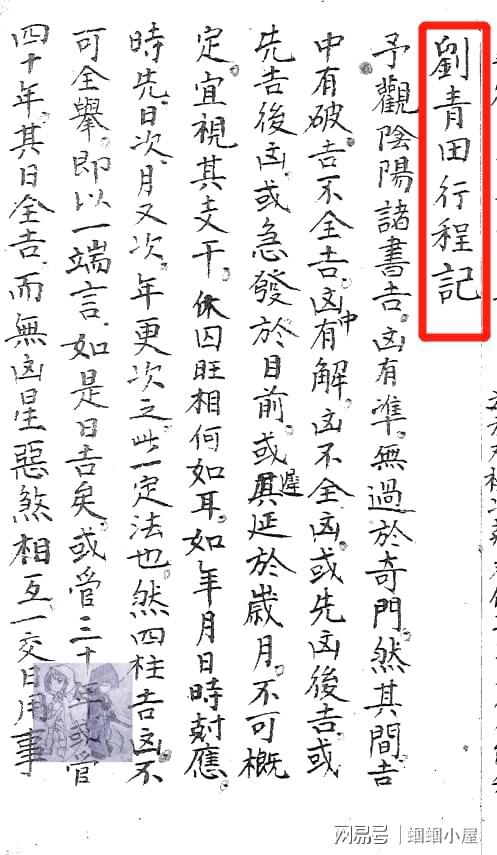 劉青田行程記
予觀陰陽諸書吉凶有準無過於奇門然其間吉
中有破吉不全吉凶有中解凶不全凶或先凶後吉或
先吉後凶或急發於目前或遲延於歲月不可概
定宜視其支干休囚旺相何如耳如年月日時尅應
時先日次月又次年更次之此一定法也然四柱吉凶不
可全舉即以一端言如是日吉矣或管三十年或管
四十年其日全吉而無凶星惡煞相互一交日用事
网易号 | 蝈蝈小屋